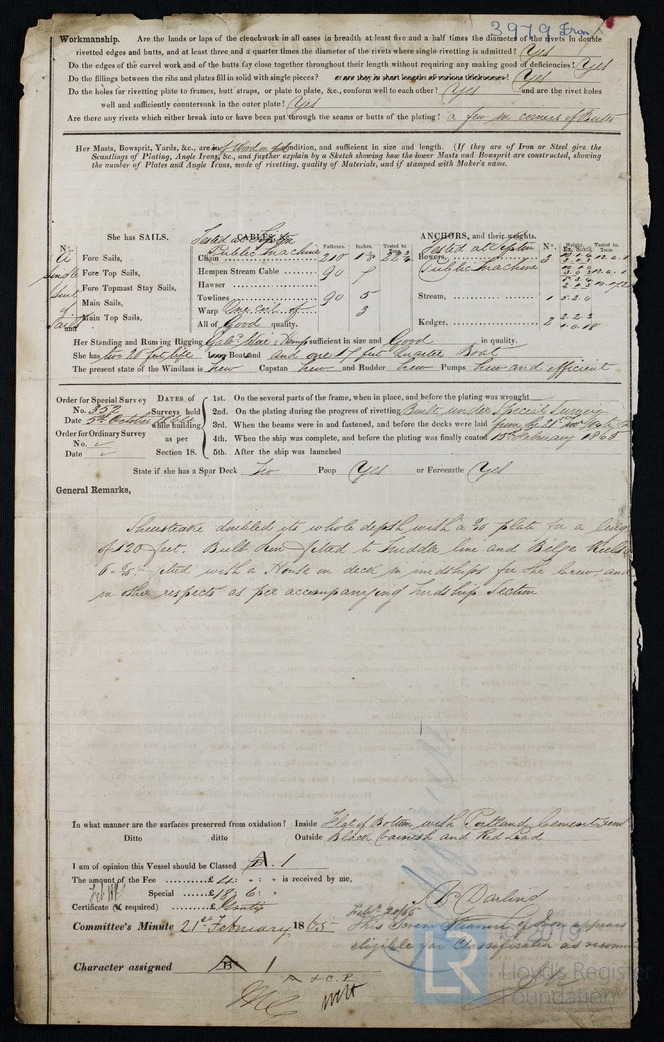 3979 Iron
Workmanship. Are the lands or laps of the clenchwork in all cases in breadth at least five and a half times the diameter of the rivets in double
rivetted edges and butts, and at least three and a quarter times the diameter of the rivets where single rivetting is admitted? Yes
Do the edges of the carvel work and of the butts fay close together throughout their length without requiring any making good of deficiencies? Yes
Do the fillings between the ribs and plates fill in solid with single pieces? or are they in short lengths of various thicknesses? Yes
Do the holes for rivetting plate to frames, butt straps, or plate to plate, &c., conform well to each other? Yes and are the rivet holes
well and sufficiently countersunk in the outer plate? Yes
Are there any rivets which either break into or have been put through the seams or butts of the plating? a few in corners of Butts
Her Masts, Bowsprit, Yards, &c., are of Wood in condition, and sufficient in size and length. (If they are of Iron or Steel give the
Scantlings of Plating, Angle Irons, &c., and further explain by a Sketch showing how the lower Masts and Bowsprit are constructed, showing
the number of Plates and Angle Irons, mode of rivetting, quality of Materials, and if stamped with Maker's name.
She has SAILS. CABLES, &c. ANCHORS, and their weights.
Tested at Tipton Public Machine
Tested at Tipton Public Machine
N°. Fathoms. Inches. Tested to Tons. N°. Weight. Ex. Stock. Tested to. Tons.
Fore Sails, Chain 210 Bowers, 3
Fore Top Sails, Hempen Stream Cable 90 7
Fore Topmast Stay Sails, Hawser
Main Sails, Towlines 90 5 Stream, 1 5.2.0
Main Top Sails, Warp One coil of 3
and All of Good quality. Kedges, 2 2.2.3
Her Standing and Running Rigging Galv. Wire & Hemp sufficient in size and Good in quality.
She has two 20 feet life Long Boat and and one 17 feet Quarter Boat
The present state of the Windlass is New Capstan New and Rudder New Pumps New and efficient
Order for Special Survey
No. 352
Date 5th October
Order for Ordinary Survey
No. ✓
Date ✓
DATES of Surveys held while building as per Section 18.
1st. On the several parts of the frame, when in place, and before the plating was wrought
2nd. On the plating during the progress of rivetting Built under Special Survey
3rd. When the beams were in and fastened, and before the decks were laid from the 21st Nov
4th. When the ship was complete, and before the plating was finally coated 15 February 1865
5th. After the ship was launched
State if she has a Spar Deck No Poop Yes or Forecastle Yes
General Remarks,
Sheerstrake doubled its whole depth with a plate for a
of 120 feet. Built fitted to Middle line and Bilge
fitted with a House on deck in midships for the Crew, and
in other respects as per accompanying Midship Section
In what manner are the surfaces preserved from oxidation? Inside Flat of Bottom with Portland Cement
Ditto ditto Outside Black Varnish and Red Lead
I am of opinion this Vessel should be Classed A 1
The amount of the Fee £4: : is received by me,
Special £18: 6:
Certificate (if required) £Gratis
A Darling
Committee's Minute 21st February 1865
Feb. 20/65
This Screw Steamer of Iron appears
eligible for Classification as
Character assigned A 1
A & C.P.
LR
© 2019
Lloyd's Register
Foundation